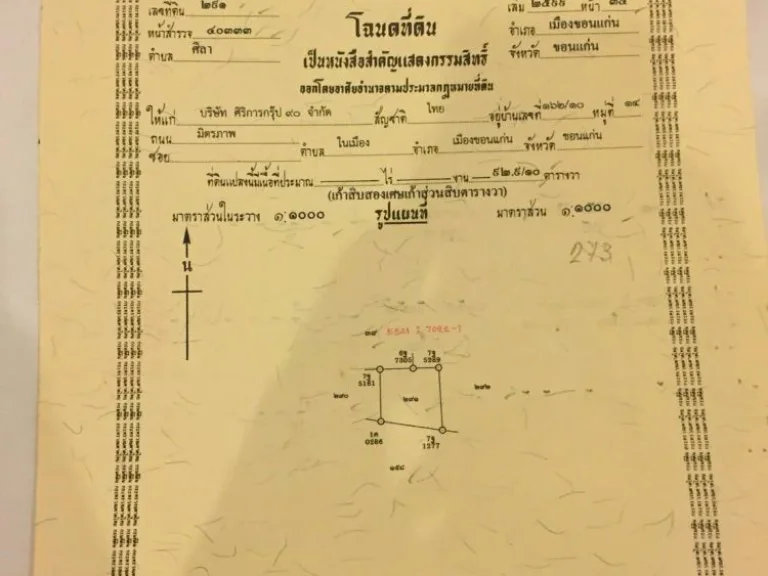 เลขที่ดิน ๒๙๑ เล่ม ๒๕๙๙ หน้า ๓๕
หน้าสำรวจ ๔๐๓๓๓ โฉนดที่ดิน อำเภอ เมืองขอนแก่น
ตำบล ศิลา เป็นหนังสือสำคัญแสดงกรรมสิทธิ์ จังหวัด ขอนแก่น
ออกโดยอาศัยอำนาจตามประมวลกฎหมายที่ดิน
ให้แก่ บริษัท ศิริการกรุ๊ป ๙๐ จำกัด สัญชาติ ไทย อยู่บ้านเลขที่ ๑๖๒/๑๐ หมู่ที่ ๑๔
ถนน มิตรภาพ
ซอย ตำบล ในเมือง อำเภอ เมืองขอนแก่น จังหวัด ขอนแก่น
ที่ดินแปลงนี้มีเนื้อที่ประมาณ ไร่ งาน ๙๒.๙/๑๐ ตารางวา
(เก้าสิบสองเศษเก้าส่วนสิบตารางวา)
มาตราส่วนในระวาง ๑:๑๐๐๐ รูปแผนที่ มาตราส่วน ๑:๑๐๐๐
273
น
๗ฐ 5161
๗ฐ 5289
๒๙๐ ๒๙๑ ๒๙๒
๑ค 0288
๗ฐ 1277
๑๕๔